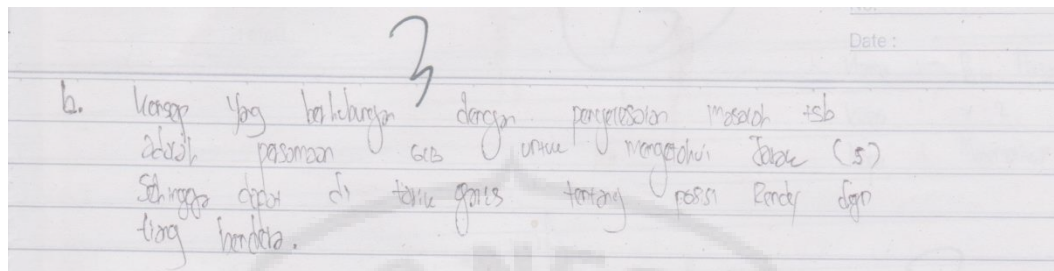 Date :
3
b. konsep yang berhubungan dengan penyelesaian masalah tsb
adalah persamaan GLB untuk mengetahui Jarak (s)
Sehingga dapat di tarik garis tentang posisi Rendy dgn
tiang bendera.